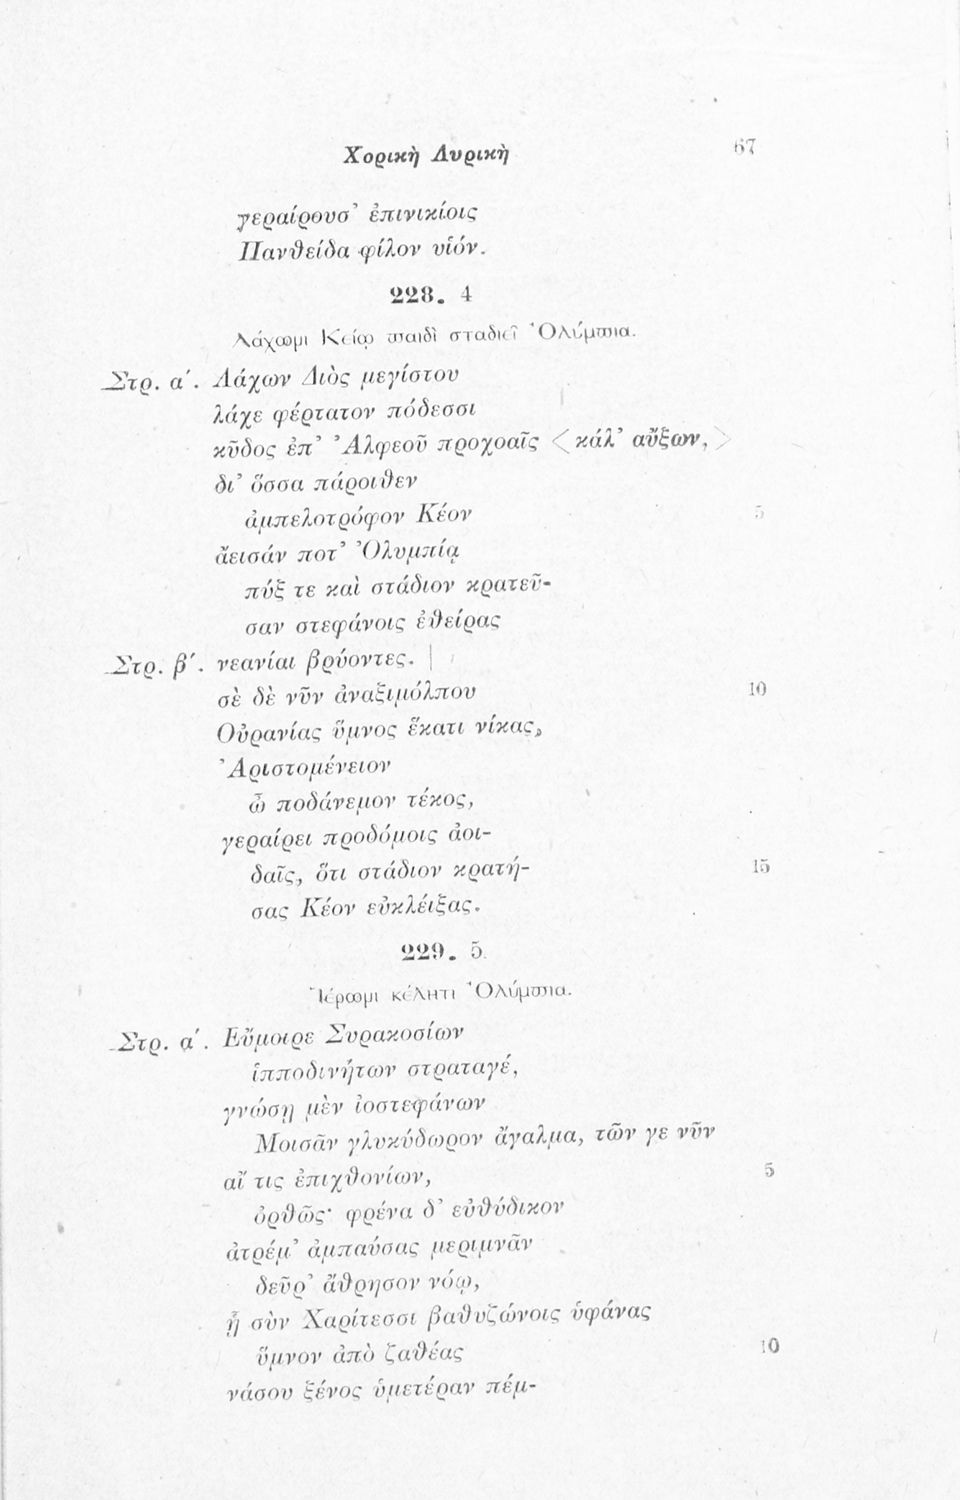 Χορικὴ Λυρικὴ 67
γεραίρουσ’ ἐπινικίοις
Πανθείδα φίλον υἱόν.
228. 4
Λάχωμι Κείῳ παιδὶ σταδιεῖ Ὀλύμπια.
Στρ. α΄. Λάχων Διὸς μεγίστου
λάχε φέρτατον πόδεσσι
κῦδος ἐπ’ Ἀλφεοῦ προχοαῖς <κάλ’ αὔξων,>
δι’ ὅσσα πάροιθεν
ἀμπελοτρόφον Κέον 5
ἄεισάν ποτ’ Ὀλυμπίᾳ
πύξ τε καὶ στάδιον κρατεῦ-
σαν στεφάνοις ἐθείρας
Στρ. β΄. νεανίαι βρύοντες.
σὲ δὲ νῦν ἀναξιμόλπου 10
Οὐρανίας ὕμνος ἕκατι νίκας,
Ἀριστομένειον
ὦ ποδάνεμον τέκος,
γεραίρει προδόμοις ἀοι-
δαῖς, ὅτι στάδιον κρατή- 15
σας Κέον εὐκλέιξας.
229. 5.
Ἱέρωμι κέλητι Ὀλύμπια.
Στρ. α΄. Εὔμοιρε Συρακοσίων
ἱπποδινήτων στραταγέ,
γνώσῃ μὲν ἰοστεφάνων
Μοισᾶν γλυκύδωρον ἄγαλμα, τῶν γε νῦν
αἴ τις ἐπιχθονίων, 5
ὀρθῶς· φρένα δ’ εὐθύδικον
ἀτρέμ’ ἀμπαύσας μεριμνᾶν
δεῦρ’ ἄθρησον νόῳ,
ᾗ σὺν Χαρίτεσσι βαθυζώνοις ὑφάνας
ὕμνον ἀπὸ ζαθέας 10
νάσου ξένος ὑμετέραν πέμ-